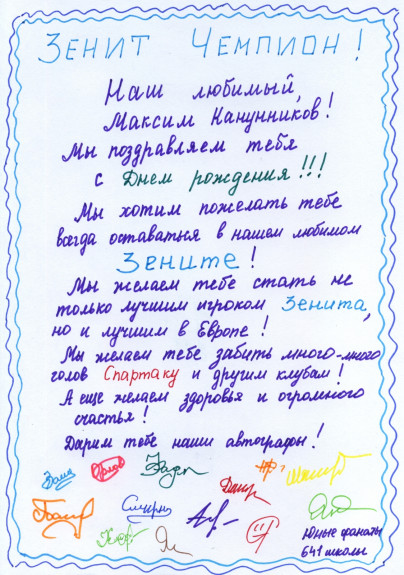 Зенит Чемпион!
Наш любимый,
Максим Канунников!
Мы поздравляем тебя
с Днем рождения!!!
Мы хотим пожелать тебе
всегда оставаться в нашем любимом
Зените!
Мы желаем тебе стать не
только лучшим игроком Зенита,
но и лучшим в Европе!
Мы желаем тебе забить много-много
голов Спартаку и другим клубам!
А еще желаем здоровья и огромного
счастья!
Дарим тебе наши автографы!
Юные фанаты
641 школы